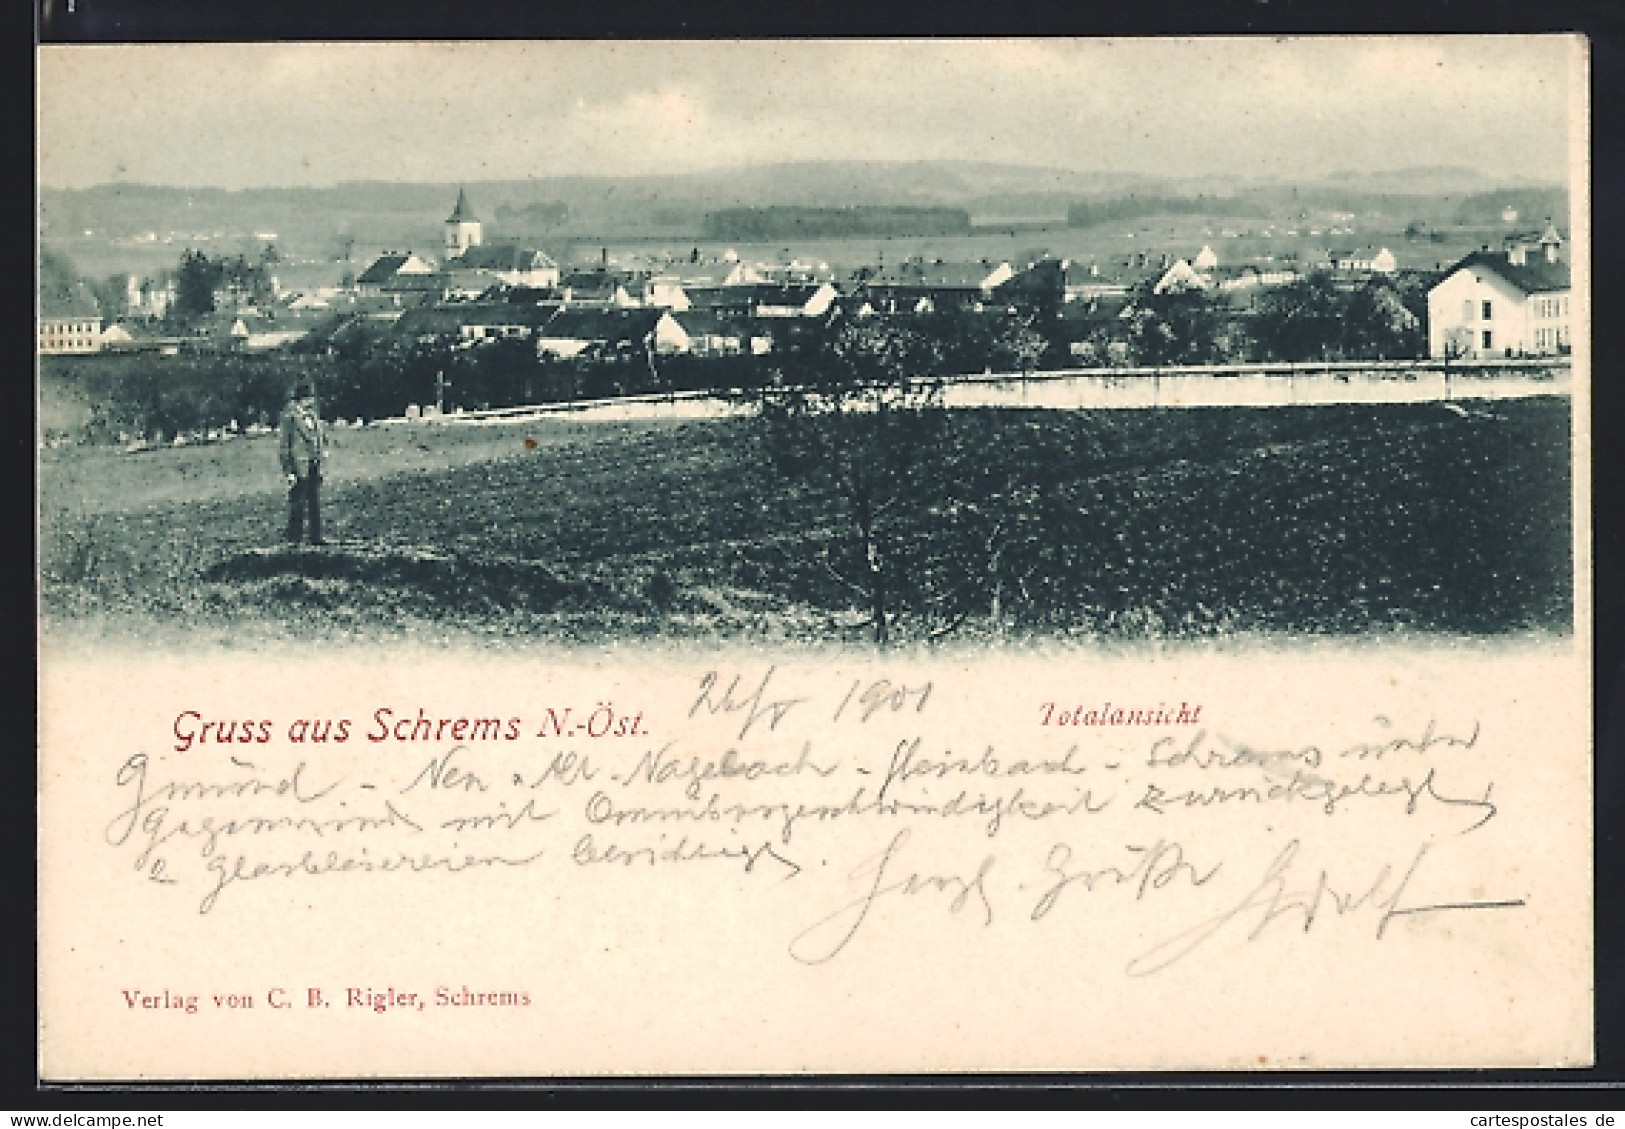 26/V 1901
Gruss aus Schrems N.-Öst.
Totalansicht
Gmünd - Neu - Alt - Nagelbach - Steinbach - Schrems unter
Gegenwind mit Omnibusgeschwindigkeit zurückgelegt,
2 Glasbläsereien besichtigt. Herzl. Grüße Adolf
Verlag von C. B. Rigler, Schrems
cartespostales de